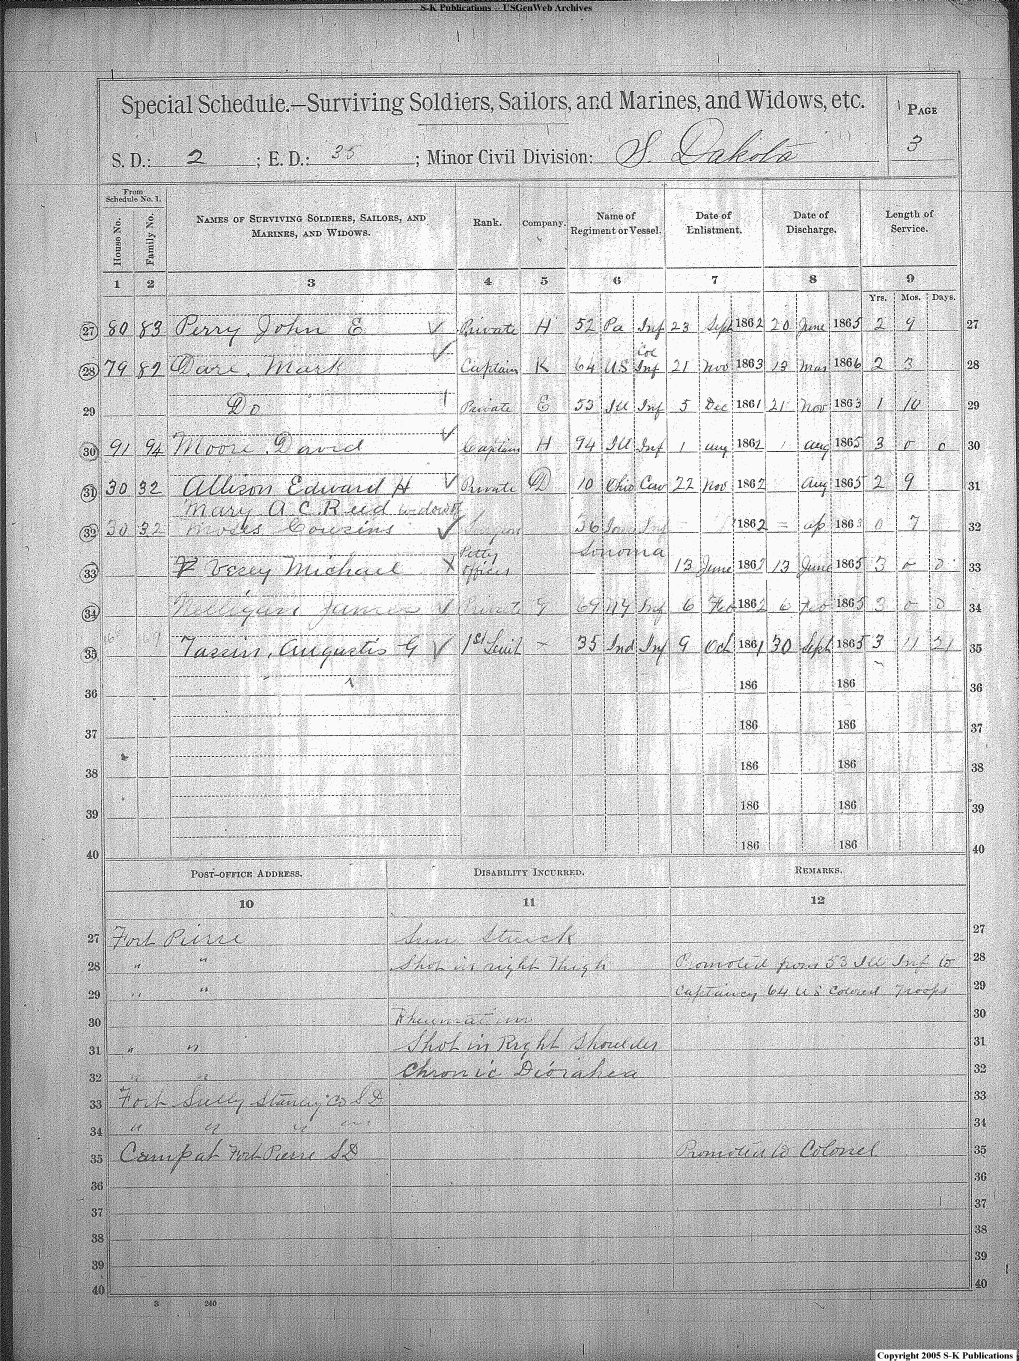 S-K Publications - USGenWeb Archives
Special Schedule.—Surviving Soldiers, Sailors, and Marines, and Widows, etc.
PAGE
3
S. D.: 2 ; E. D.: 35 ; Minor Civil Division: S. Dakota
From Schedule No. 1.
House No. Family No. NAMES OF SURVIVING SOLDIERS, SAILORS, AND MARINES, AND WIDOWS. Rank. Company. Name of Regiment or Vessel. Date of Enlistment. Date of Discharge. Length of Service.
1 2 3 4 5 6 7 8 9
Yrs. Mos. Days.
27 80 83 Perry John E Private H 52 Pa Inf 23 Sept 1862 20 June 1865 2 9 27
28 79 82 Dare, Mark Captain K 64 U S Col Inf 21 Nov 1863 13 Mar 1866 2 3 28
29 Do Private E 53 Ill Inf 5 Dec 1861 21 Nov 1863 1 10 29
30 91 94 Moore, David Captain H 94 Ill Inf 1 aug 1862 1 aug 1865 3 0 0 30
31 30 32 Allison Edward H Private D 10 Ohio Cav 22 Nov 1862 Aug 1865 2 9 31
Mary A C Reed widow of
32 30 32 Moses Couzins Surgeon 36 Iowa Inf 1862 ap 1863 0 7 32
33 Vesey Michael Petty Officer Sonoma 13 June 1862 13 June 1865 3 0 0 33
34 James Private G 69 NY Inf 6 Feb 1862 6 Feb 1865 3 0 0 34
35 Tassin, Augustis G 1st Leiut – 35 Ind Inf 9 Oct 1861 30 Sept 1865 3 11 21 35
36 186 186 36
37 186 186 37
38 186 186 38
39 186 186 39
40 186 186 40
POST-OFFICE ADDRESS. DISABILITY INCURRED. REMARKS.
10 11 12
27 Fort Pierre Sun Struck 27
28 " " Shot in right Thigh Promoted from 53 Ill Inf to 28
29 " " Captaincy 64 U S Colored Troops 29
30 30
31 " " Shot in Right Shoulder 31
32 " " Chronic Diorahea 32
33 Fort Sully Stanley Co S D 33
34 " " " " 34
35 Camp at Fort Pierre SD Promoted to Colonel 35
36 36
37 37
38 38
39 39
40 40
240
Copyright 2005 S-K Publications